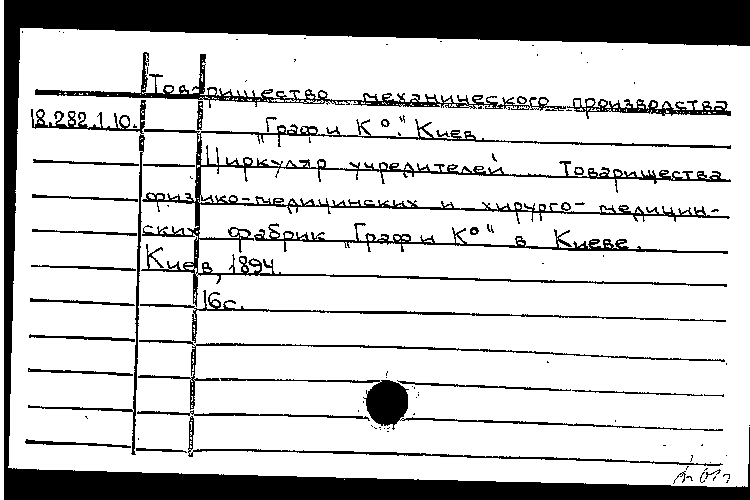 Товарищество механического производства
18.282.1.10. „Граф и К°." Киев.
Циркуляр учредителей Товарищества
физико-медицинских и хирурго-медицин-
ских фабрик „Граф и К°" в Киеве.
Киев, 1894.
16с.